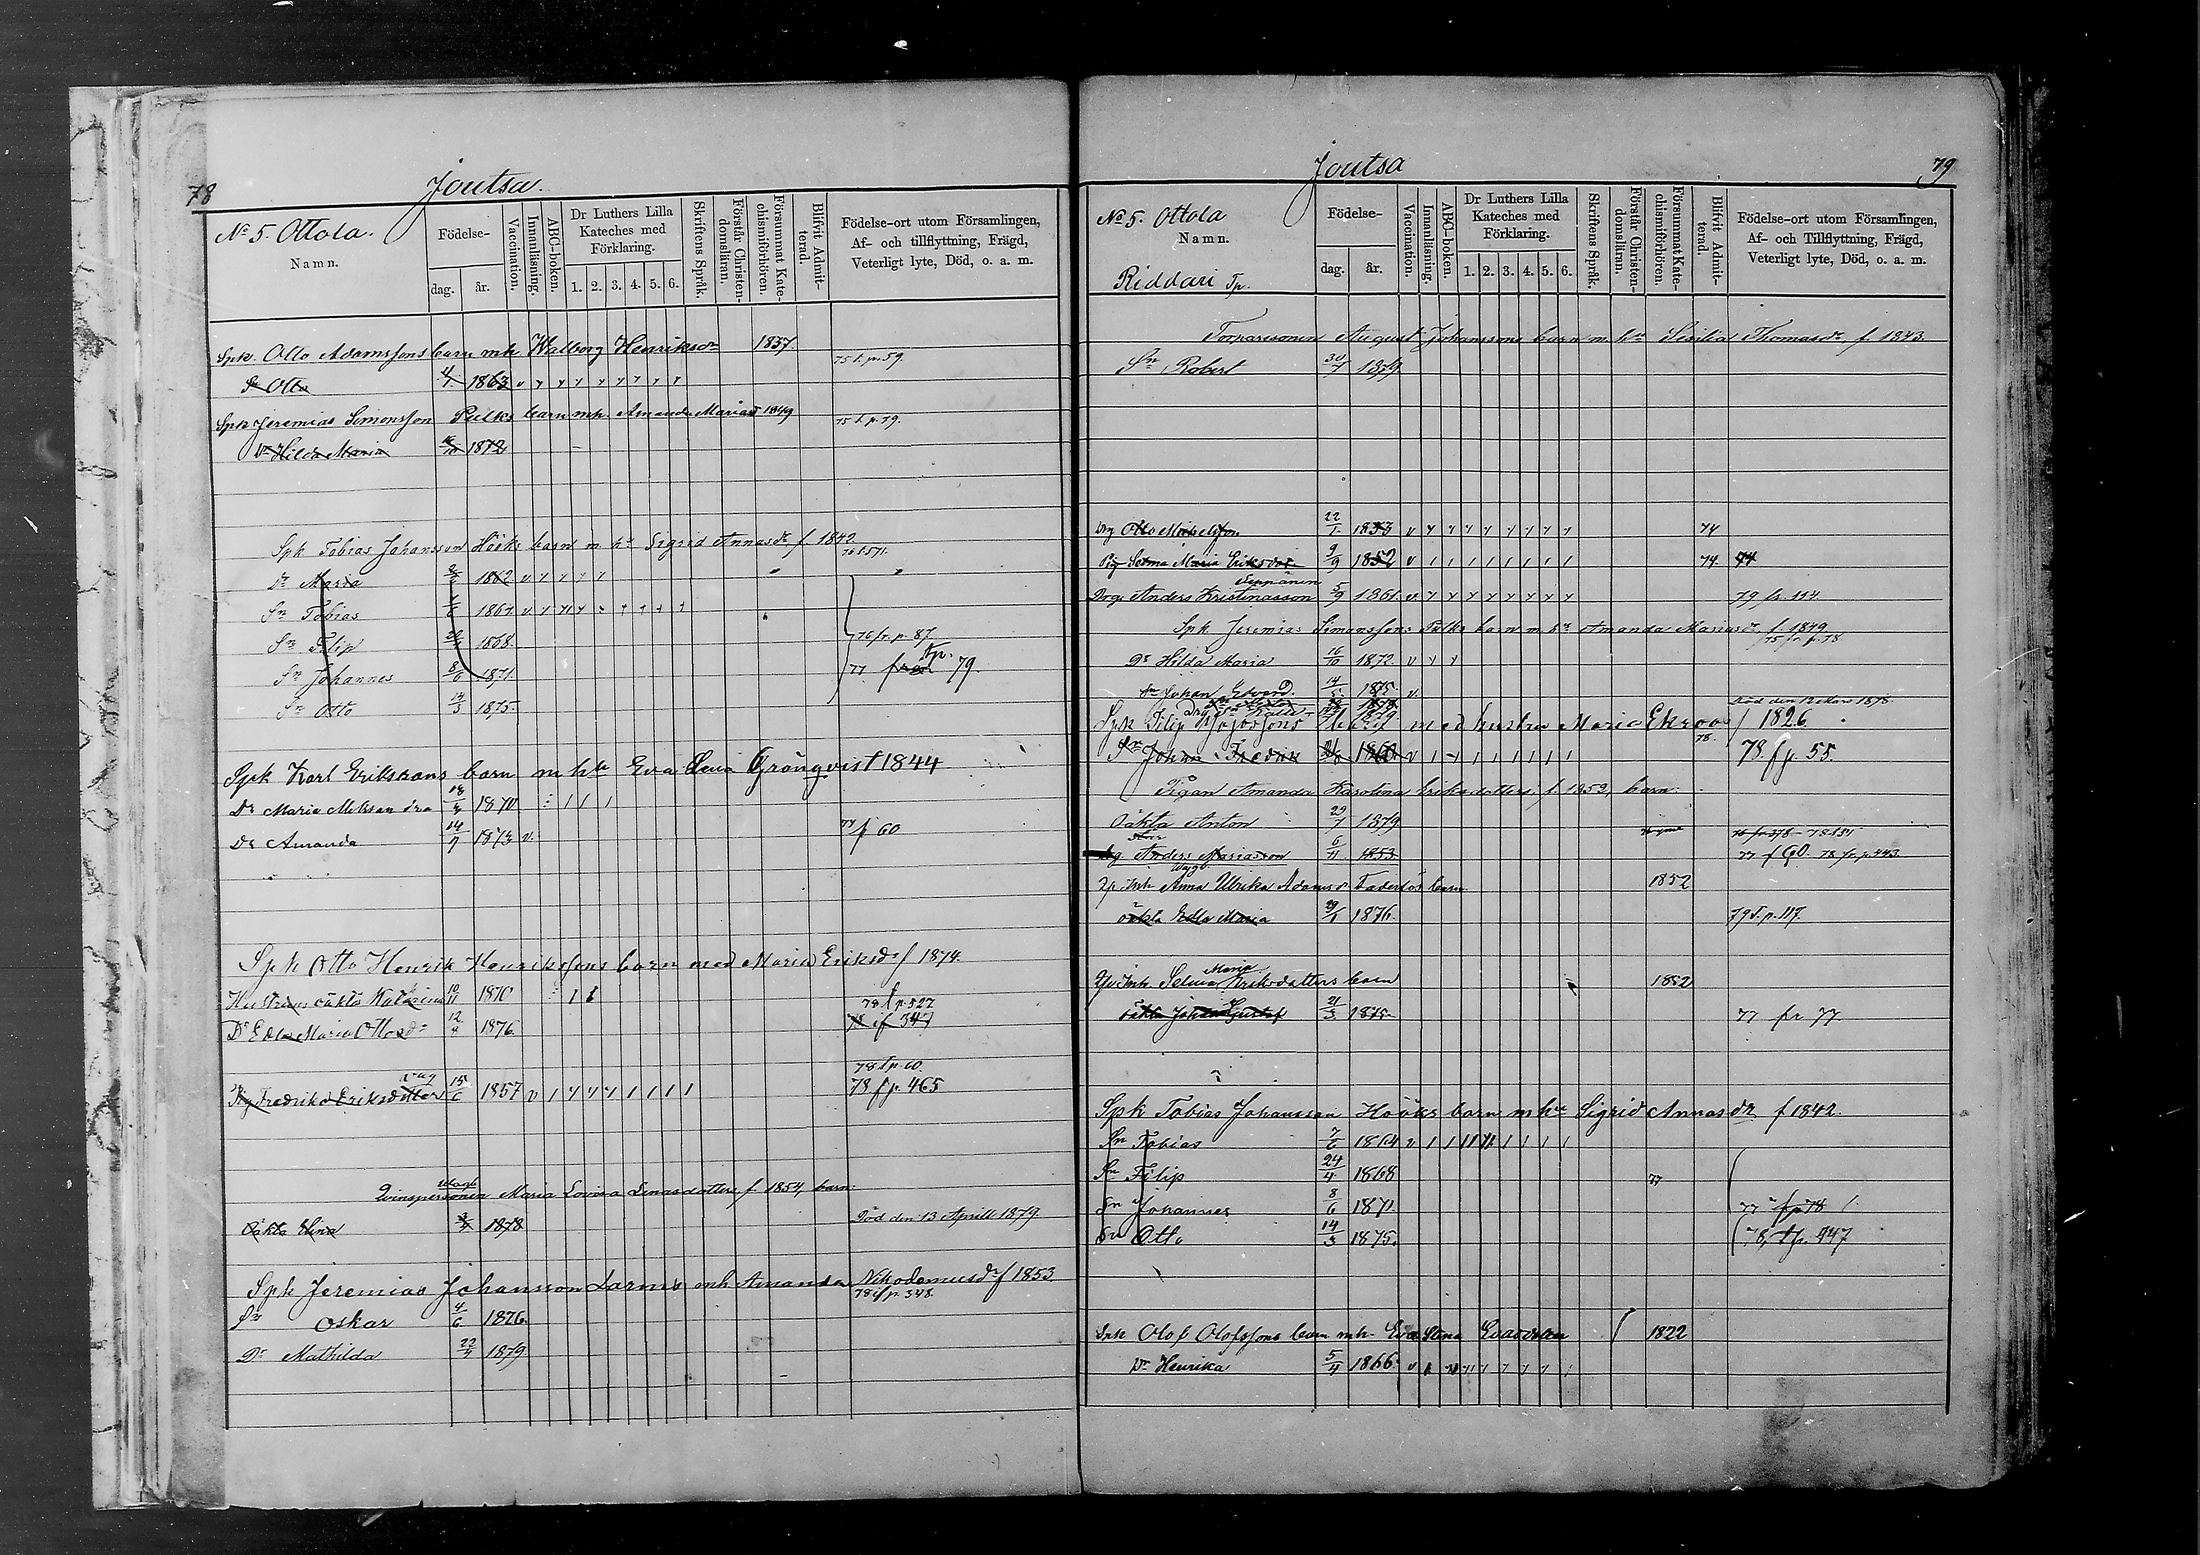 78
Joutsa.
No 5. Ottola.
Namn.
Födelse-
dag.
år.
Vaccination.
Innanläsning.
ABC-boken.
Dr Luthers Lilla
Kateches med
Förklaring.
1. 2. 3. 4. 5. 6.
Skriftens Språk.
Förstår Christen-
domsläran.
Försummat Kate-
chismiförhören.
Blifvit Admit-
terad.
Födelse-ort utom Församlingen,
Af- och tillflyttning, Frägd,
Veterligt lyte, Död, o. a. m.
Spk. Otto Adamssons barn mh Walborg Henriksdr 1837
75 t. p. 59.
Sn Otto 1863
Spk Jeremias Simonsson barn mh. Amanda Mariasd 1849
75 t. p. 79.
Dr Hilda Maria 1872
Spk Tobias Johansson Hööks barn m hu Sigrid Annasdr f 1842
Dr Maria 1862
Sn Tobias 1864
Sn Filip 1868
76 fr. p. 87
Sn Johannes 8/6 1871
77 79.
Sn Otto 14/3 1875
Spk Karl Erikssons barn m hu Eva Grönqvist 1844
Dr Maria 18 1870
Dr Amanda 14/7 1873 v.
77 f 60
Spk Otto Henrik Henrikssons barn med Maria Eriksdr f 1874.
Hustruns oäkta Katarina 10/11 1870
78 f p. 527
Dr Edla Maria Ottosdr 12/4 1876
78 if 347
78 t p. 60.
Pig Fredrika Eriksdotter 15/6 1857
78 f p. 465
Qvinspersonen Maria Lovisa Linasdotters f. 1854, barn:
Oäkta Elina 1878
Död den 13 Aprill 1879.
Spk Jeremias Johansson Larms mh Amanda Nikodemusdr f 1853
78 if p. 348.
Sn Oskar 4/6 1876
Dr Mathilda 22/7 1879
79
Joutsa
No 5. Ottola
Namn.
Riddari Tp.
Födelse-
dag.
år.
Vaccination.
Innanläsning.
ABC-boken.
Dr Luthers Lilla
Kateches med
Förklaring.
1. 2. 3. 4. 5. 6.
Skriftens Språk.
Förstår Christen-
domsläran.
Försummat Kate-
chismiförhören.
Blifvit Admit-
terad.
Födelse-ort utom Församlingen,
Af- och Tillflyttning, Frägd,
Veterligt lyte, Död, o. a. m.
Torparesonen August Johanssons barn m. hu Sesilia Thomasdr f. 1843.
Sn Robert 30/7 1879
Drg Otto Mikelsson 22/1 1833 74
Pig Selma Maria Eriksdot 9/9 1852 74. 74
Seppänen
Drg. Anders Kristinasson 5/9 1861 79 fr. 114.
Spk Jeremias Simonssons barn m hu Amanda Mariasdr f. 1849
75 fr. p. 78
Dr Hilda Maria 16/10 1872
Sn Johan Edvard. 14/5 1875
Död den 12 Mars 1878.
Spk Filip med hustru Maria Ekroos f 1826
78.
Sn Johan Fredrik 1860
78. f p. 55.
Pigan Amanda Karolina Eriksdotters f. 1852, barn:
Oäkta Anton 29/7 1879
Drg Anders Mariasson 6/11 1853
77 f 60. 78 fr. p. 443.
Anna Ulrika Adamsdr Faderlös barn 1852
oäkta Edla Maria 29/1 1876
79 t. p. 117.
Maria
Selma Eriksdotters barn 1852
oäkta Johan Gustaf 21/3 1875
77 fr 77.
Spk Tobias Johansson Hööks barn m hu Sigrid Annasdr f 1842.
Sn Tobias 7/6 1864
Sn Filip 24/4 1868 77
Sn Johannes 8/6 1871
77 fp 78
Sn Otto 14/3 1875.
78, tp. 947
Spk Olof Olofssons barn mh. Eva Stina Evasdotter f 1822
Dr Henrika 5/4 1866